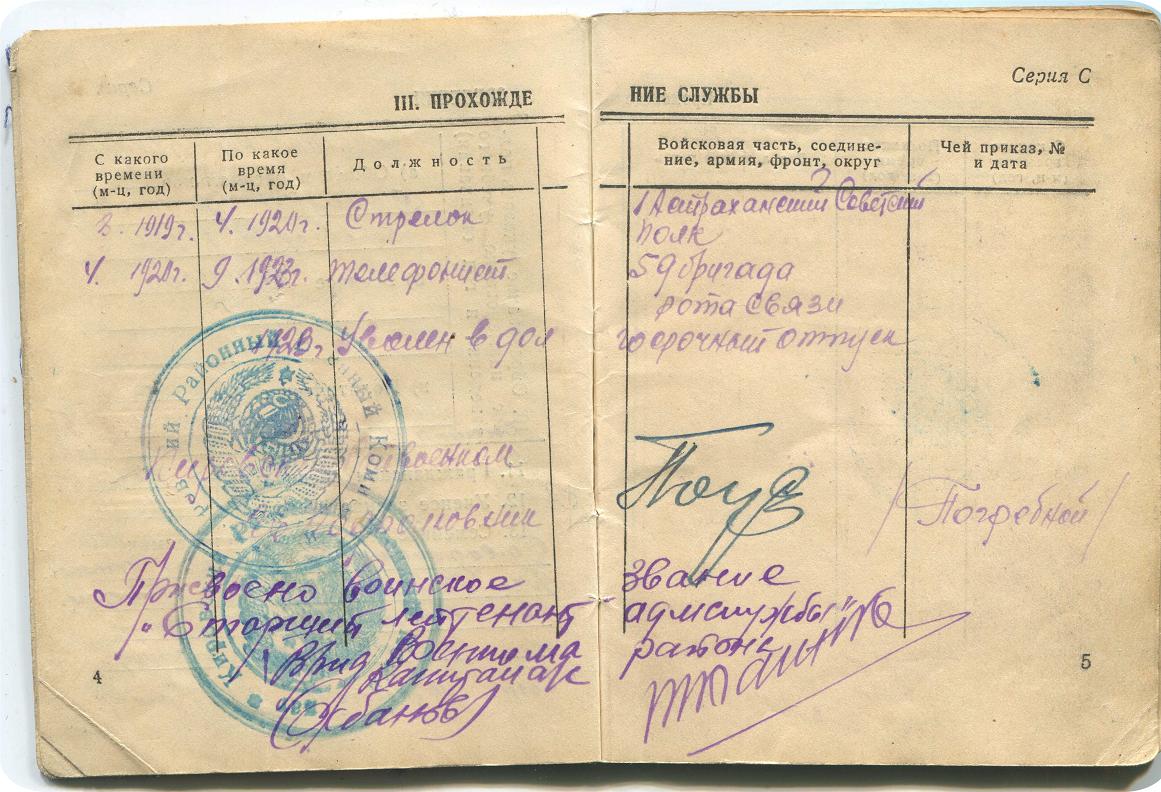 Серия С
III. ПРОХОЖДЕ НИЕ СЛУЖБЫ
С какого времени (м-ц, год)
По какое время (м-ц, год)
Должность
Войсковая часть, соедине-
ние, армия, фронт, округ
Чей приказ, №
и дата
1919 г. 4. 1920 г. Стрелок 1 Астраханский Советский
полк
4. 1920 г. 9. 1923 г. телефонист 59 бригада
рота связи
Уволен в дол госрочный отпуск
военком
/Погребной/
Присвоено воинское звание
"Старший лейтенант адмслужбы"
Врид Военкома района
капитан
4
5
ревский Районный
Коми
Кир